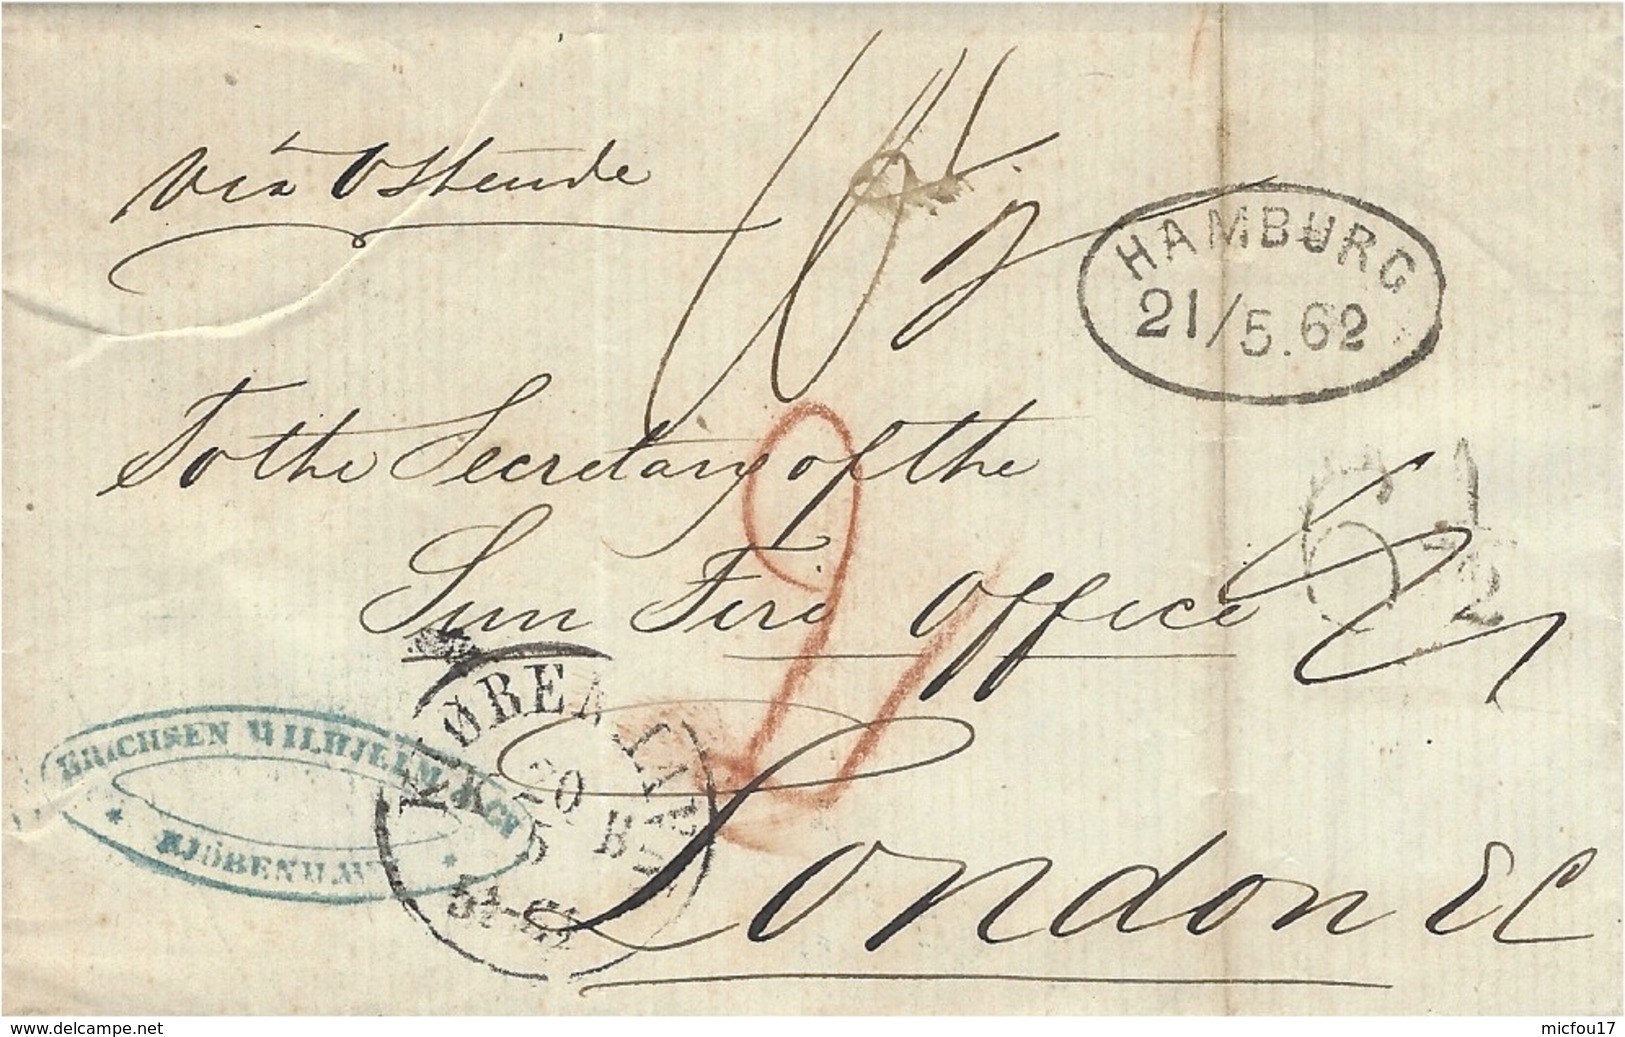 via Ostende
HAMBURG
21/5.62
To the Secretary of the
6 1/2
Sun Fire Office
KJØBENHAVN
20
5 B
ERICHSEN WILHJELM & Co
* KJÖBENHAVN *
London EC
www.delcampe.net
micfou17